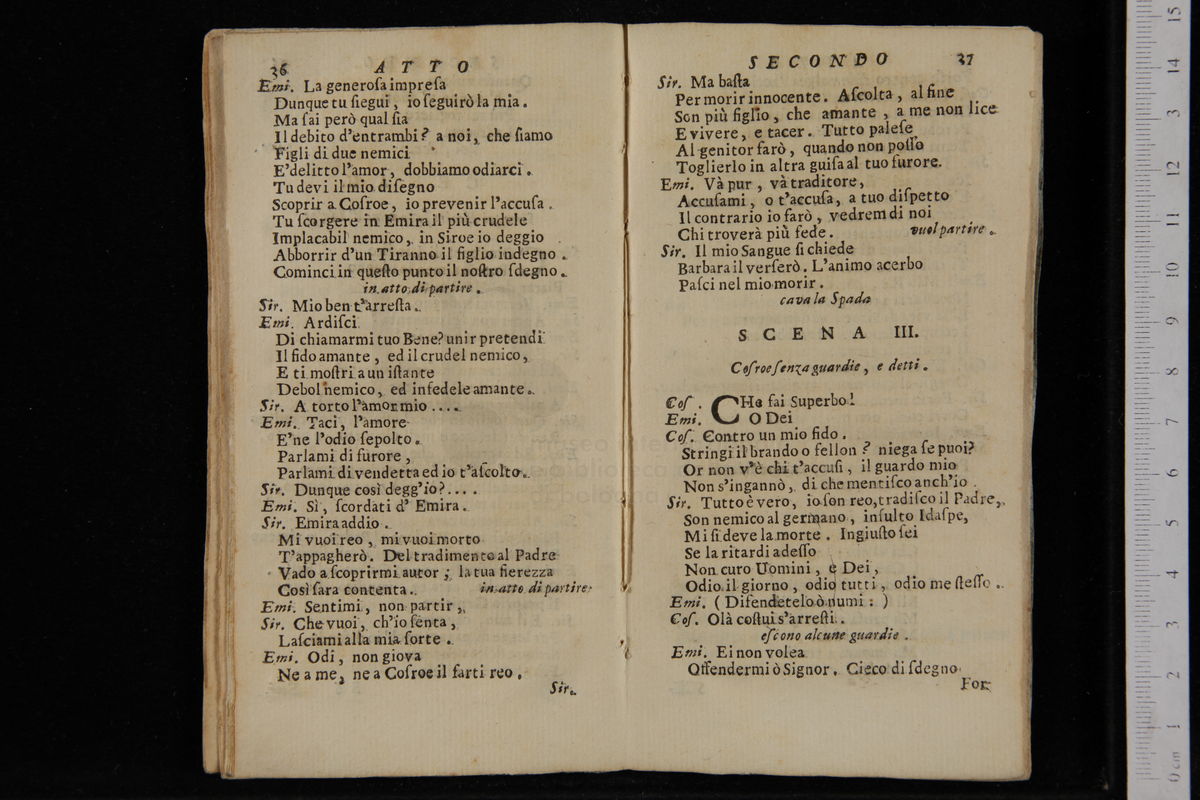 36 ATTO
Emi. La generoſa impreſa
Dunque tu ſiegui, io ſeguirò la mia.
Ma ſai però qual ſia
Il debito d'entrambi? a noi, che ſiamo
Figli di due nemici
E'delitto l'amor, dobbiamo odiarci.
Tu devi il mio diſegno
Scoprir a Coſroe, io prevenir l'accuſa.
Tu ſcorgere in Emira il più crudele
Implacabil nemico, in Siroe io deggio
Abborrir d'un Tiranno il figlio indegno.
Cominci in queſto punto il noſtro ſdegno.
in atto di partire.
Sir. Mio ben t'arreſta.
Emi. Ardiſci
Di chiamarmi tuo Bene? unir pretendi
Il fido amante, ed il crudel nemico,
E ti moſtri a un iſtante
Debol nemico, ed infedele amante.
Sir. A torto l'amor mio ....
Emi. Taci, l'amore
E'ne l'odio ſepolto.
Parlami di furore,
Parlami di vendetta ed io t'aſcolto.
Sir. Dunque così degg'io?....
Emi. Sì, ſcordati d' Emira.
Sir. Emira addio.
Mi vuoi reo, mi vuoi morto
T'appagherò. Del tradimento al Padre
Vado a ſcoprirmi autor; la tua fierezza
Così ſara contenta. in atto di partire:
Emi. Sentimi, non partir,
Sir. Che vuoi, ch'io ſenta,
Laſciami alla mia ſorte.
Emi. Odi, non giova
Ne a me, ne a Coſroe il farti reo.
Sir.
SECONDO 37
Sir. Ma baſta
Per morir innocente. Aſcolta, al fine
Son più figlio, che amante, a me non lice
E vivere, e tacer. Tutto paleſe
Al genitor farò, quando non poſſo
Toglierlo in altra guiſa al tuo furore.
Emi. Và pur, và traditore,
Accuſami, o t'accuſa, a tuo diſpetto
Il contrario io farò, vedrem di noi
Chi troverà più fede. vuol partire.
Sir. Il mio Sangue ſi chiede
Barbara il verſerò. L'animo acerbo
Paſci nel mio morir.
cava la Spada
SCENA III.
Coſroe ſenza guardie, e detti.
Coſ. CHe fai Superbo!
Emi. O Dei
Coſ. Contro un mio fido.
Stringi il brando o fellon? niega ſe puoi?
Or non v'è chi t'accuſi, il guardo mio
Non s'ingannò, di che mentiſco anch'io.
Sir. Tutto è vero, io ſon reo, tradiſco il Padre,
Son nemico al germano, inſulto Idaſpe,
Mi ſi deve la morte. Ingiuſto ſei
Se la ritardi adeſſo
Non curo Uomini, e Dei,
Odio il giorno, odio tutti, odio me ſteſſo.
Emi. ( Difendetelo ò numi: )
Coſ. Olà coſtui s'arreſti.
eſcono alcune guardie.
Emi. Ei non volea
Offendermi ò Signor. Cieco di ſdegno
For-